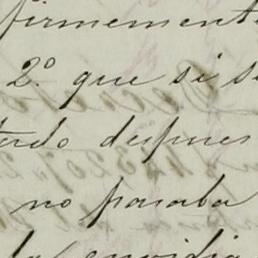 firmement
2.º que si s
tado despues
no pasaba
la envidia